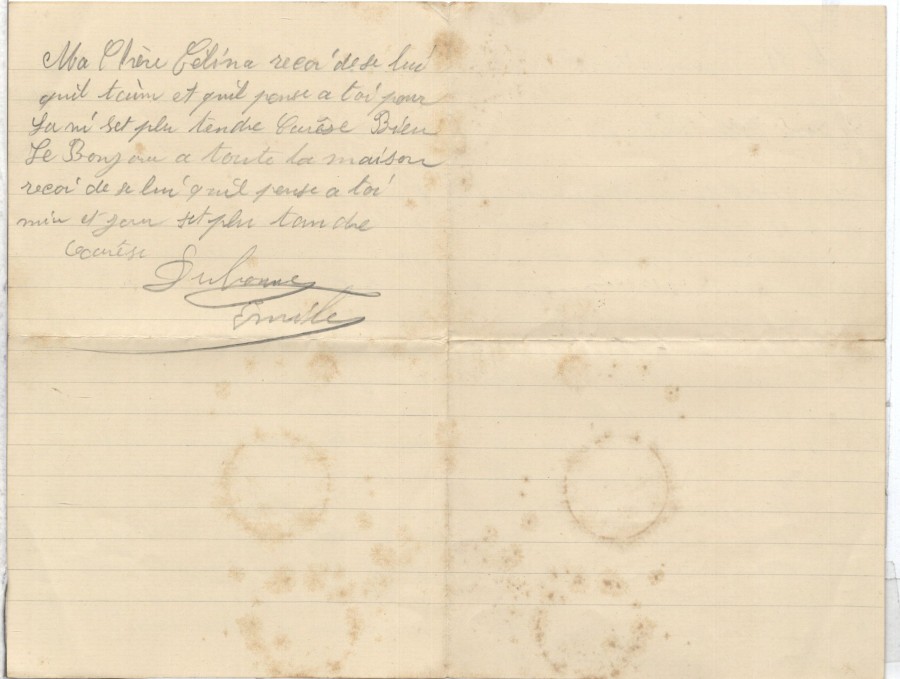 Ma Chère Célina recoi de se lui
quil taim et quil pense a toi pour
La vi set plu tendre Carèse Bien
Le Bonjour a toute la maison
recoi de se lui quil pense a toi
nuiu et jour set plu tandre
Carèse
Emile